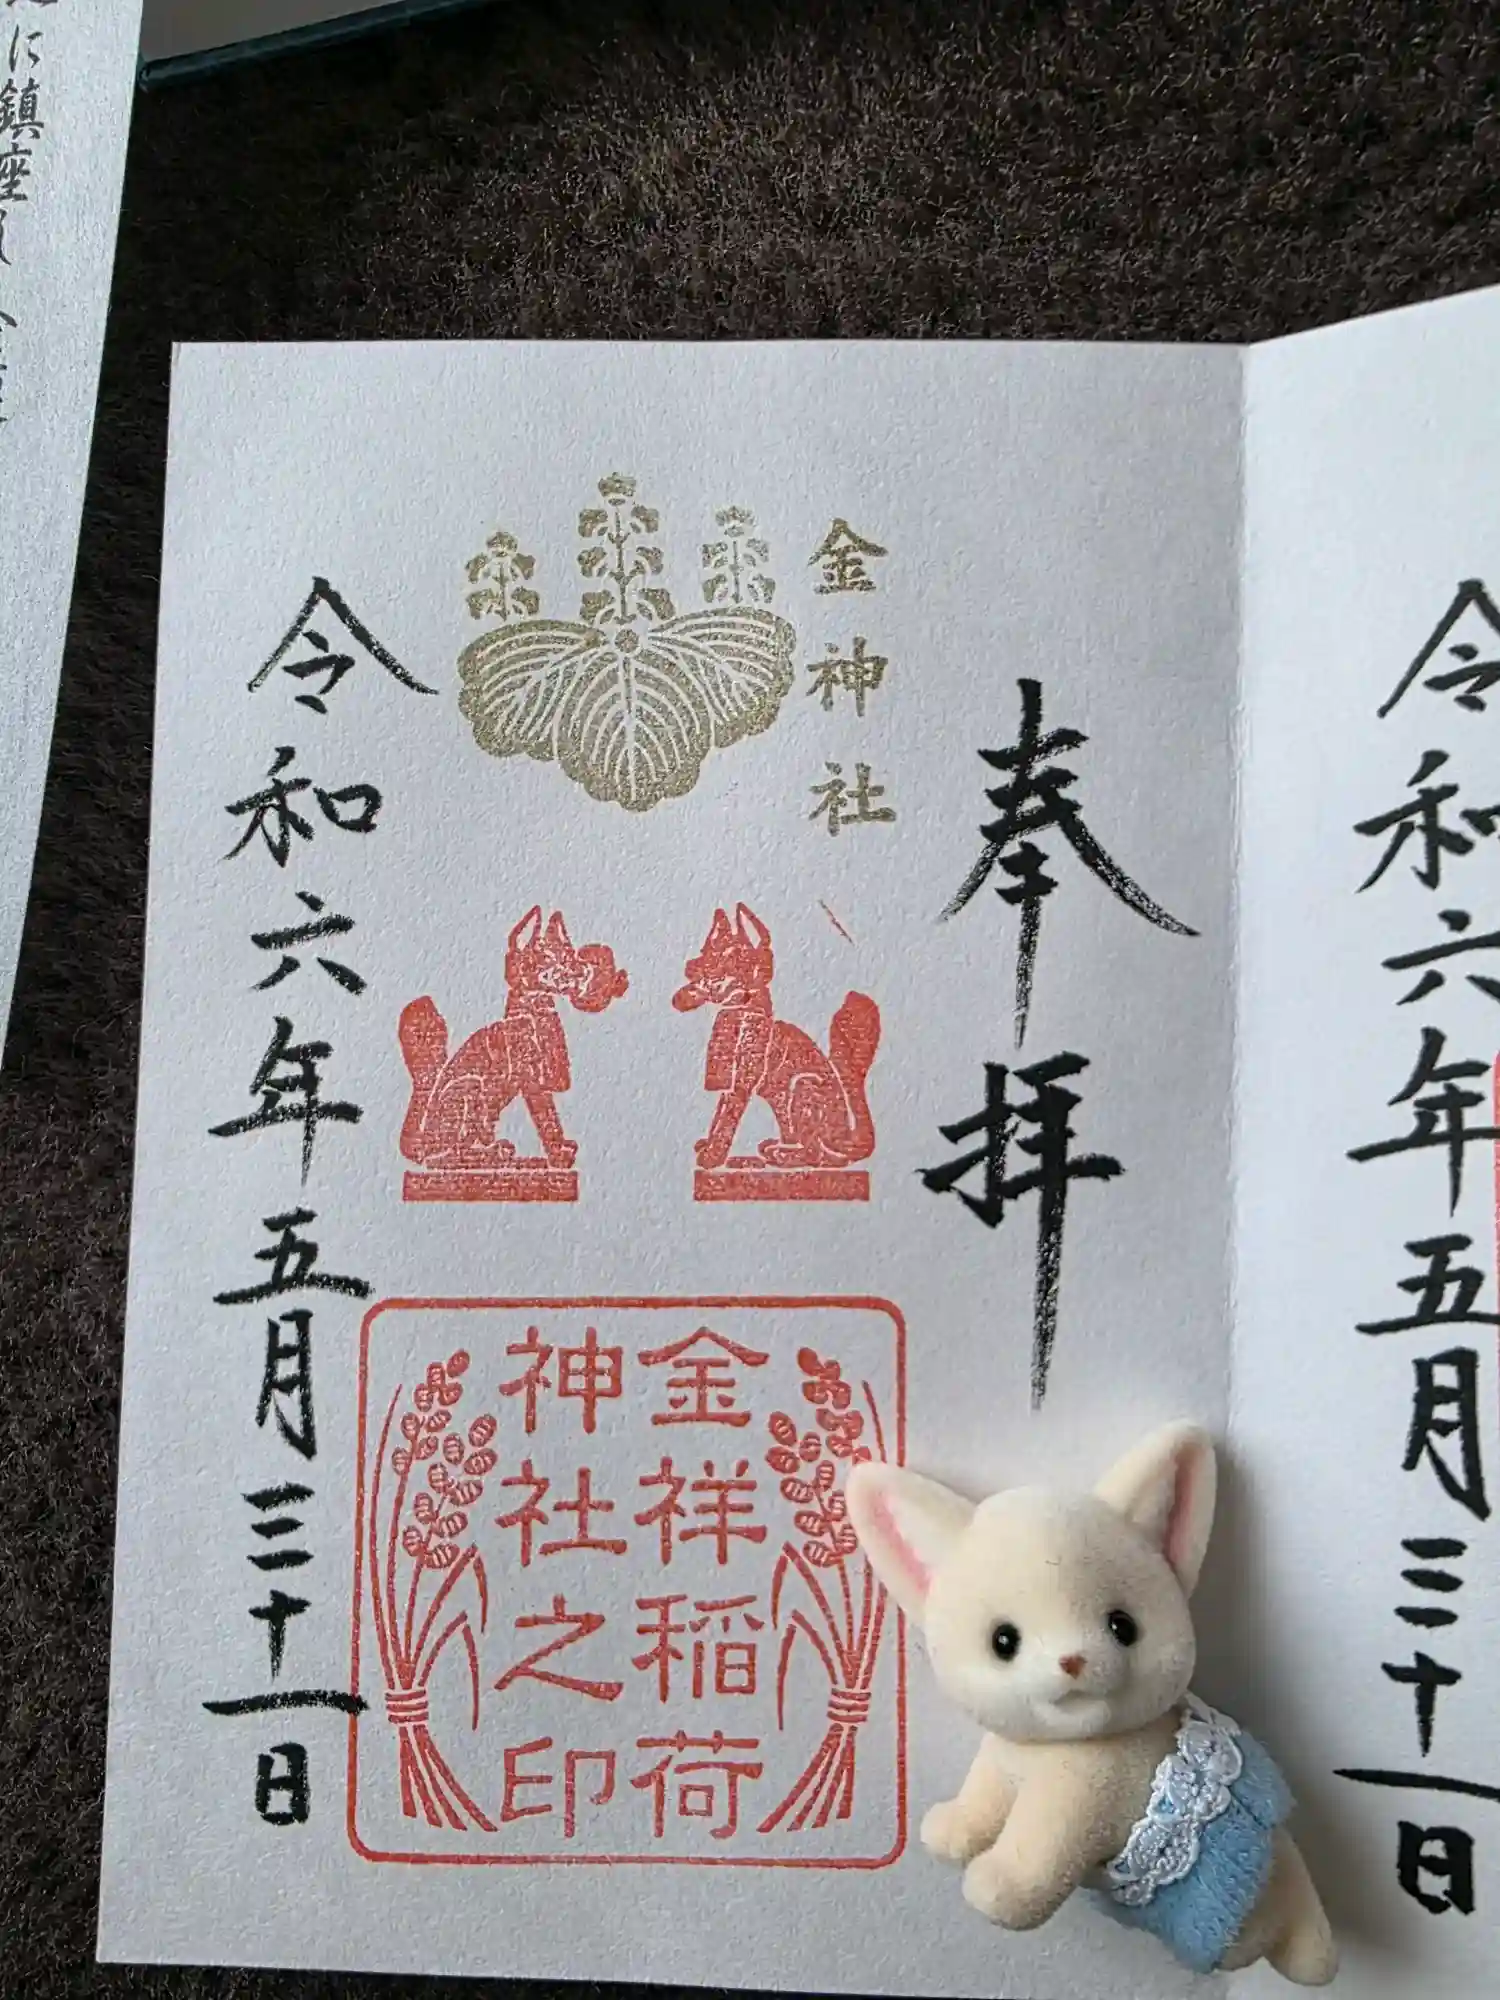 奉拝
金神社
金祥稲荷
神社之印
令和六年五月三十一日
令和六年五月三十一日
に鎮座